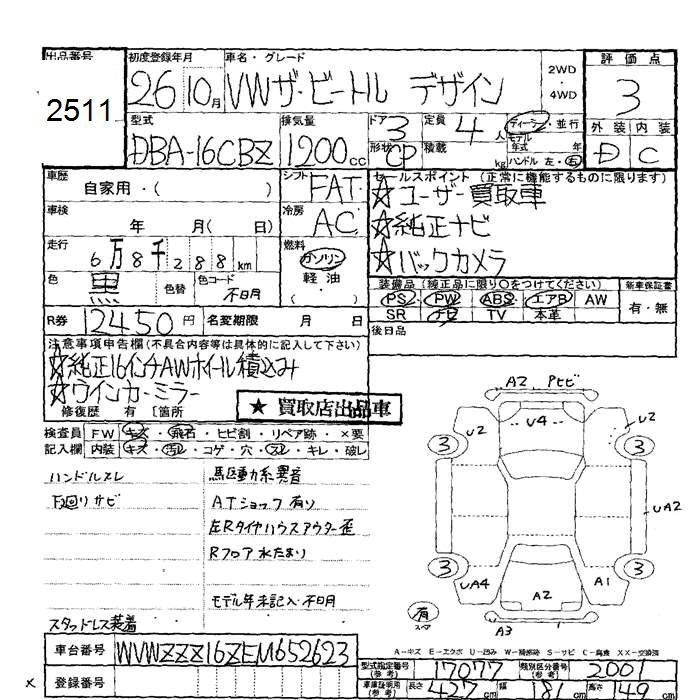 出品番号
2511
初度登録年月
26 10月
車名・グレード
VWザ・ビートル デザイン
2WD
・
4WD
評価点
3
外装 内装
D C
型式
DBA-16CBZ
排気量
1200cc
ドア
3
形状
CP
定員
4人
積載
kg
ディーラー・並行
モデル
年式 年
ハンドル 左・右
車歴
自家用・( )
シフト
FAT
車検
年 月( 日)
冷房
AC
走行
6万8千288km
燃料
ガソリン
・
軽油
( )
色
黒
色替
色コード
不明
R券 12450円
名変期限 月 日
セールスポイント (正常に機能するものに限ります)
☆ユーザー買取車
☆純正ナビ
☆バックカメラ
装備品(純正品に限り○をつけてください)
PS PW ABS エアB AW
SR ナビ TV 本革
新車保証書
有・無
後日品
注意事項申告欄(不具合内容等は具体的に記入して下さい)
☆純正16インチAWホイール積込み
☆ウインカーミラー
修復歴 有 [箇所
★ 買取店出品車
検査員
記入欄
FW キズ・飛石・ヒビ割・リペア跡・×要
内装 キズ・汚レ・コゲ・穴・スレ・キレ・破レ
ハンドルスレ
下廻りサビ
スタッドレス装着
馬区動力系異音
ATショック有り
左Rタイヤハウスアウター歪
Rフロア水たまり
モデル年未記入・不明
A2 Pセビ
U2 U4 U2
3 3
UA2
3 3
UA4 A2 A1
有
スペア
A3
A-キズ E-エクボ U-凹み W-補修跡 S-サビ C-腐食 XX-交換済
車台番号 WVWZZZ16ZEM652623
登録番号
×
型式指定番号
(参考)
17077
類別区分番号
(参考)
2001
車庫証明用
(参考)
長さ 427cm 幅 181cm 高さ 149cm